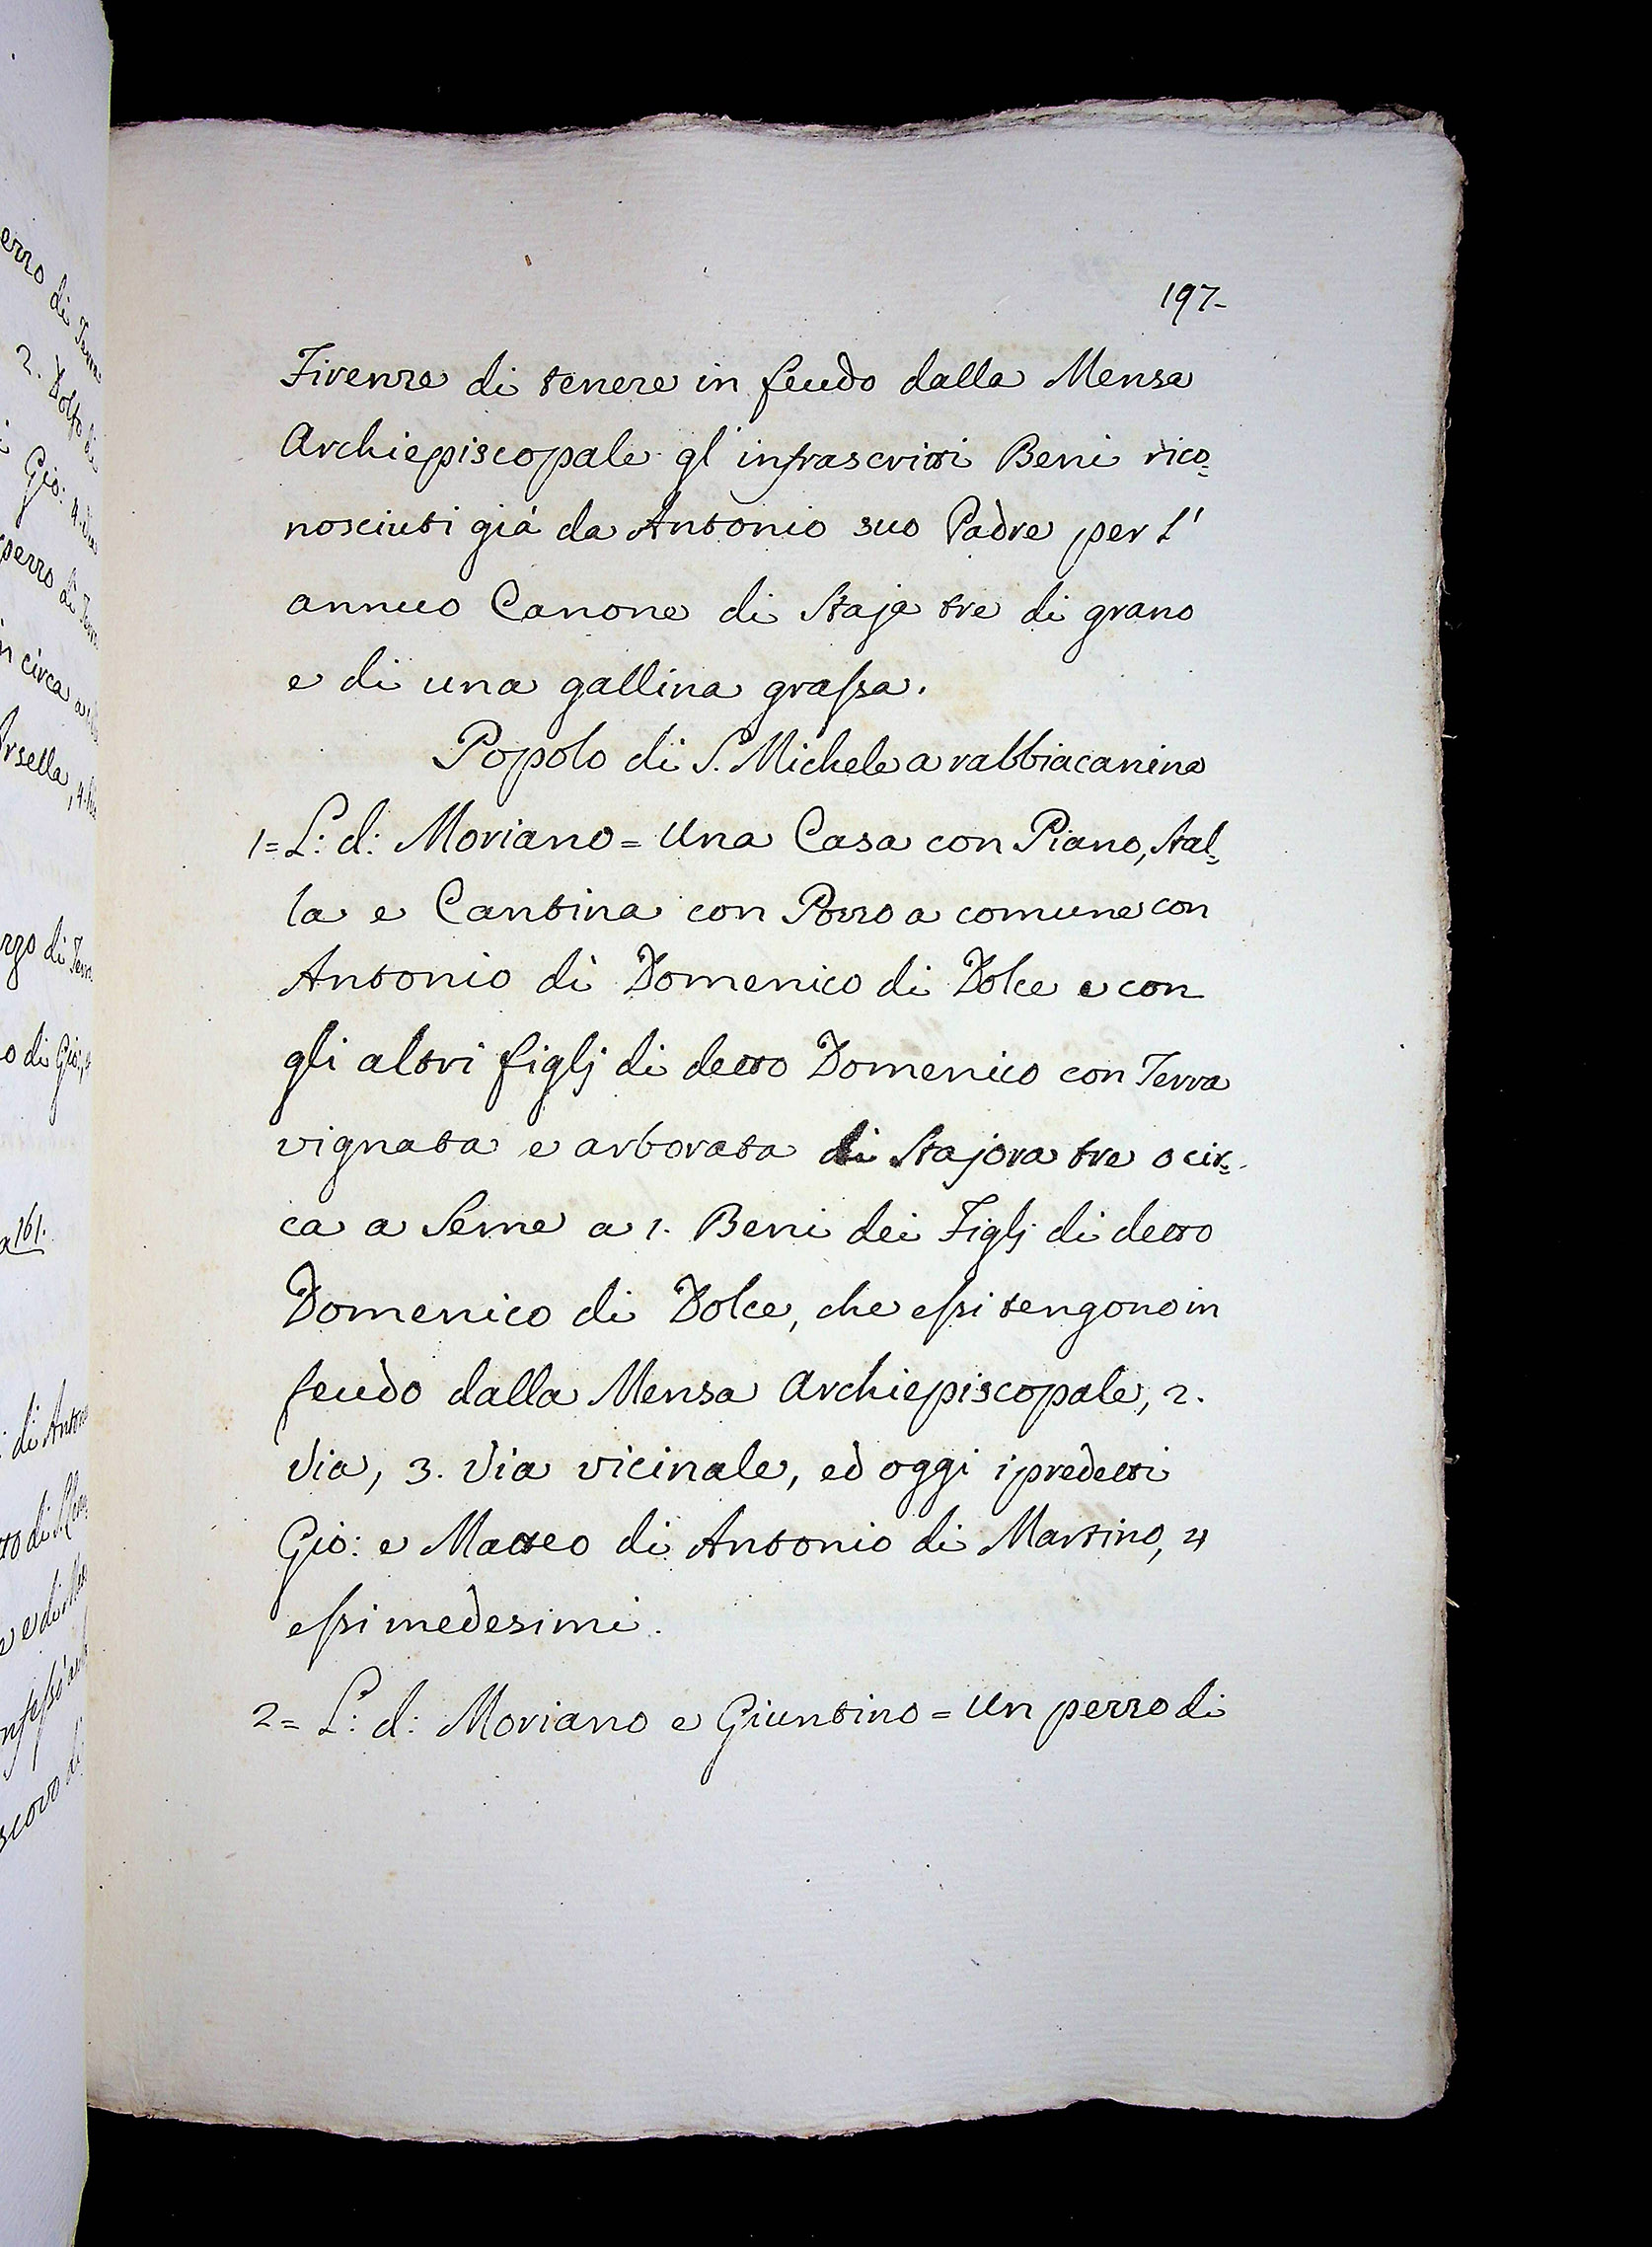 197-
Firenze di tenere in feudo dalla Mensa
Archiepiscopale gl'infrascritti Beni rico=
nosciuti già da Antonio suo Padre per l'
annuo Canone di Staja tre di grano
e di una gallina grassa.
Popolo di S. Michele a rabbiacanina
1= L: d: Moriano = Una Casa con Piano, Stal=
la e Cantina con Pozzo a comune con
Antonio di Domenico di Dolce e con
gli altri figlj di detto Domenico con Terra
vignata e arborata di Stajora tre o cir=
ca a Seme a 1. Beni dei Figlj di detto
Domenico di Dolce, che essi tengono in
feudo dalla Mensa Archiepiscopale, 2.
Via, 3. Via vicinale, ed oggi i predetti
Gio: e Matteo di Antonio di Martino, 4
essi medesimi.
2= L: d: Moriano e Giuntino = Un pezzo di